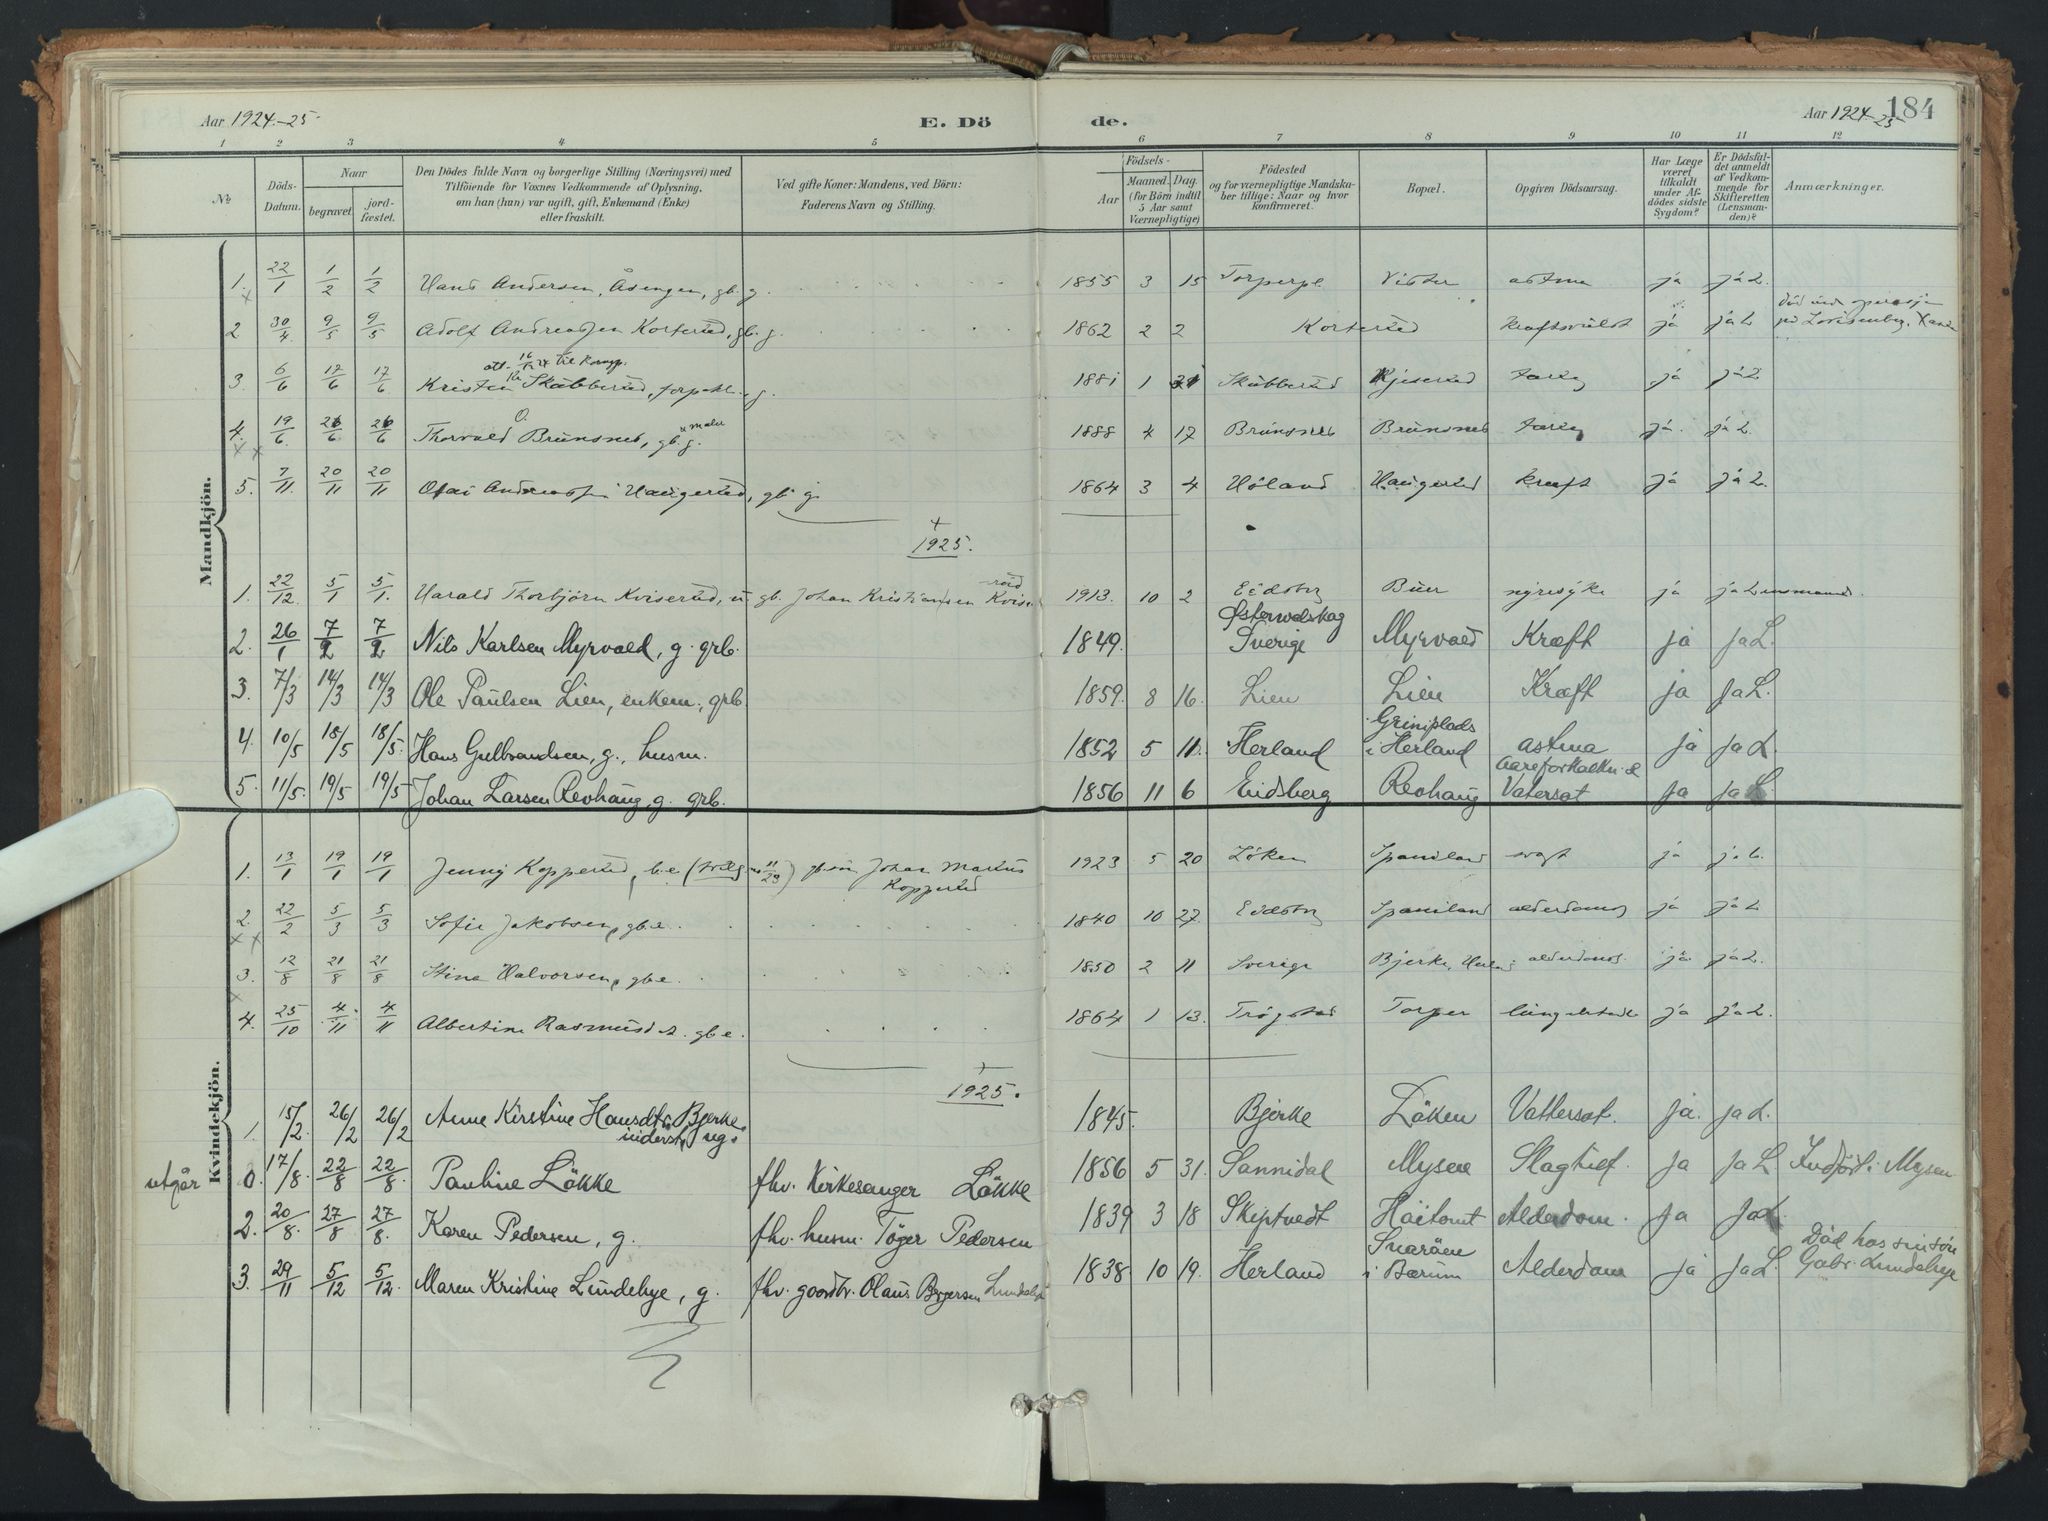 Aar 1924-25
E. Dö de.
Aar 1924-25
184
1 2 3 4 5 6 7 8 9 10 11 12
№
Döds-Datum.
Naar
begravet.
jord-fæstet.
Den Dödes fulde Navn og borgerlige Stilling (Næringsvei) med
Tilföiende for Voxnes Vedkommende af Oplysning,
om han (hun) var ugift, gift, Enkemand (Enke)
eller fraskilt.
Ved gifte Koner: Mandens, ved Börn:
Faderens Navn og Stilling.
Födsels-
Aar
Maaned. Dag.
(for Börn indtil
5 Aar samt
Værnepligtige)
Födested
og for værnepligtige Mandska-
ber tillige: Naar og hvor
konfirmeret.
Bopæl.
Opgiven Dödsaarsag.
Har Læge
været
tilkaldt
under Af-
dödes sidste
Sygdom?
Er Dödsfal-
det anmeldt
af Vedkom-
mende for
Skifteretten
(Lensman-
den)?
Anmærkninger.
Mandkjön.
1. 22/1 1/2 1/2 Hans Andersen, Åsengen, gb. g. 1855 3 15 Torperpl Vister astma ja ja L.
2 30/4 9/5 9/5 Adolf Andreassen Korterud, gb. g. 1862 2 2 Korterud kraftsvulst ja ja L
3. 6/6 17/6 17/6 Kristen Skubberud, g. 1881 1 Skubberud ja ja L
4. 19/6 26/6 26/6 Thorvald O. Brunsnes, gb. g. 1888 4 17 Brunsnes Brunsnes ja. ja L.
5. 7/11 20/11 20/11 Haugerud, gb. g. 1864 3 4 Höland Haugerud kræft ja ja L.
1925.
1. 22/12 5/1 5/1. Harald Thorbjörn Kviserud, u. gb. Johan Kristiansen 1913. 10 2 Eidsberg Buer nyresyke ja ja Lensmand.
2. 26/1 7/2 7/2 Nils Karlsen Myrvold, g. grb. 1849. Sverige Myrvold Kræft ja ja L.
3. 7/3 14/3 14/3 Ole Paulsen Lien, enkem., grb. 1859. 8 16. Lien Lien Kræft ja ja L.
4. 10/5 18/5 18/5. Hans Gulbrandsen, g., husm. 1852 5 11. Herland Griniplads i Herland astma ja ja L.
5. 11/5. 19/5 19/5 Johan Larsen Revhaug, g. grb. 1856 11 6 Eidsberg Revhaug Aareforkalkn. & Vatersot ja ja L.
Kvindekjön.
1. 13/1 19/1 19/1 Jenny Kopperud, Johan Martus Kopperud 1923 5 20 Löken Spaneland ja ja L.
2. 22/2 5/3 5/3 Sofie Jakobsen, gb.e. 1840 10 27. Eidsberg Spaneland alderdoms ja ja L
3. 12/8 21/8 21/8 Stina Halvorsen, gb.e. 1850 2 11 Sverige Bjerke, alderdoms. ja ja L.
4. 25/10 4/11 4/11 Albertine Rasmusdt. gb e. 1864 1 13. Trögstad Torper ja ja L.
1925.
1. 15/2. 26/2 26/2 Anne Kirstine Hansdtr. Bjerke, inderst, ug. 1845. Bjerke Löken Vattersot. ja. ja L.
utgår 0. 17/8. 22/8 22/8. Pauline Lökke fhv. Kirkesanger Lökke 1856 5 31. Sannidal Mysen Slagtilf. ja ja L Indfört i Mysen
2. 20/8. 27/8 27/8. Karen Pedersen, g. fhv. husm. Töger Pedersen 1839 3 18 Skiptvedt Alderdom. ja ja L.
3 29/11 5/12 5/12. Maren Kristine Lundebye, g. fhv. gaardbr. Olaus Bergersen Lundebye 1838. 10 19. Herland Snaröen i Bærum Alderdom ja ja L. Död hos sin sön Gabr. Lundebye